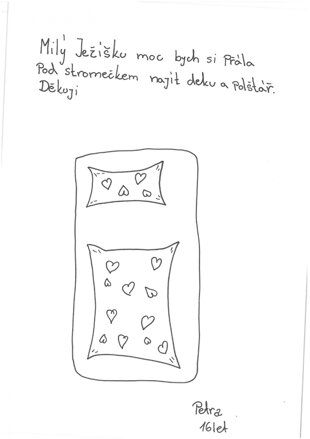 Milý Ježíšku moc bych si Přála
Pod stromečkem najít deku a polštář.
Děkuji
Petra
16let